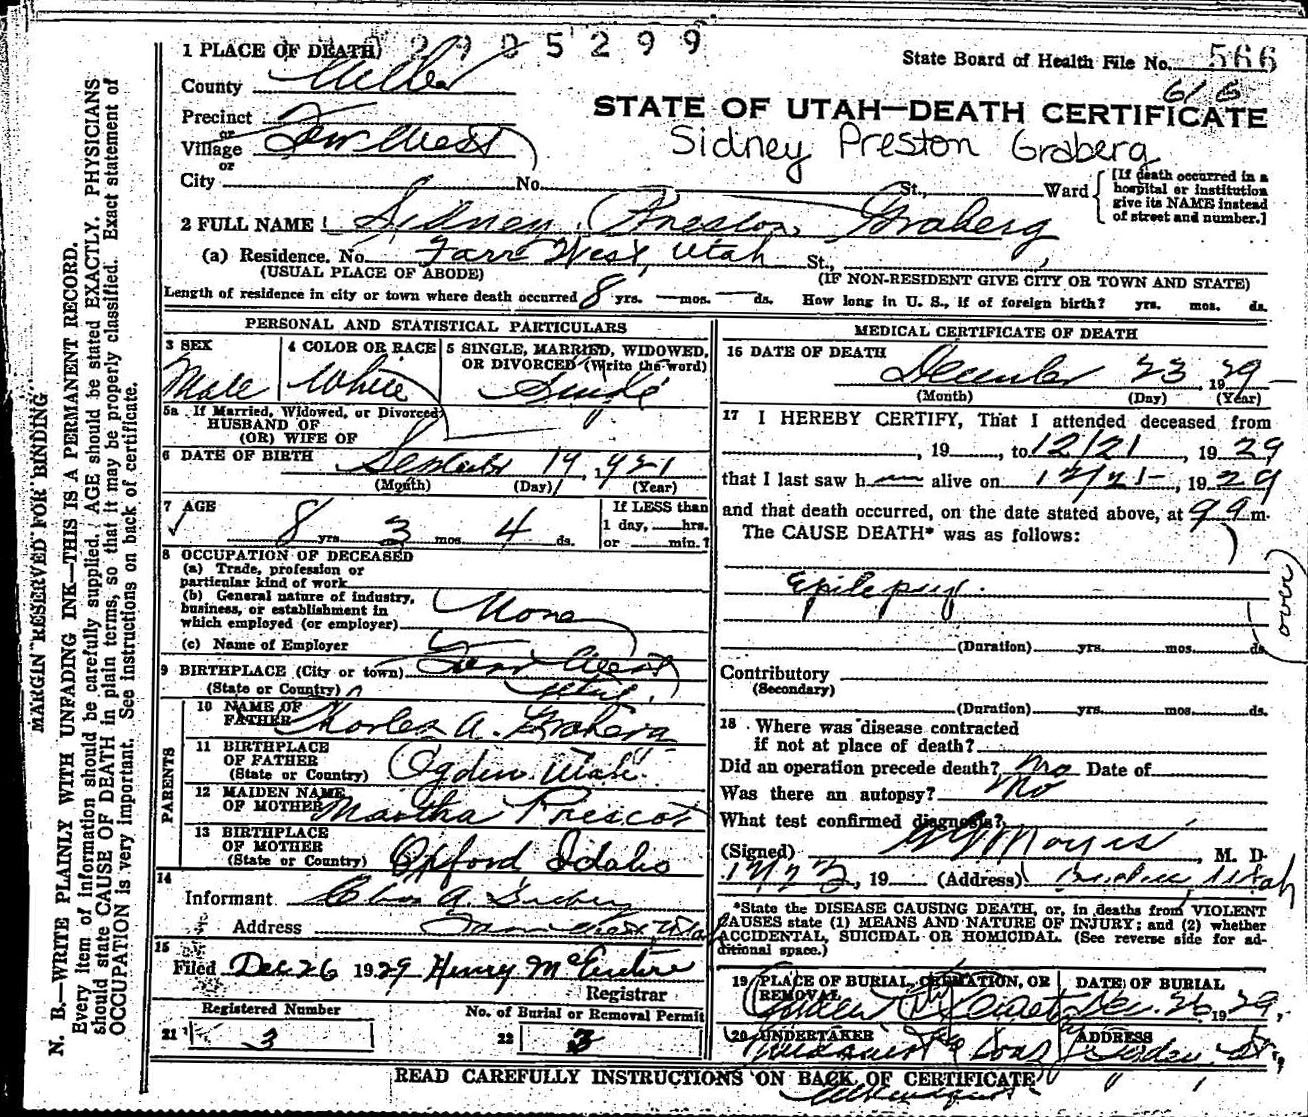 2905299
State Board of Health File No. 566
1 PLACE OF DEATH
County Weber
Precinct
or
Village Farr West
or
City No. St., Ward
[If death occurred in a hospital or institution give its NAME instead of street and number.]
STATE OF UTAH—DEATH CERTIFICATE
Sidney Preston Graberg
2 FULL NAME Sidney Preston Graberg
(a) Residence. No. Farr West, Utah St.,
(USUAL PLACE OF ABODE) (IF NON-RESIDENT GIVE CITY OR TOWN AND STATE)
Length of residence in city or town where death occurred 8 yrs. — mos. — ds. How long in U. S., if of foreign birth? yrs. mos. ds.
PERSONAL AND STATISTICAL PARTICULARS
3 SEX Male
4 COLOR OR RACE White
5 SINGLE, MARRIED, WIDOWED, OR DIVORCED (Write the word) Single
5a If Married, Widowed, or Divorced
HUSBAND OF
(OR) WIFE OF
6 DATE OF BIRTH September 19, 1921
(Month) (Day) (Year)
7 AGE 8 yrs 3 mos. 4 ds.
If LESS than
1 day, hrs.
or min.?
8 OCCUPATION OF DECEASED
(a) Trade, profession or
particular kind of work
(b) General nature of industry,
business, or establishment in
which employed (or employer) None
(c) Name of Employer
9 BIRTHPLACE (City or town) Farr West
(State or Country) Utah
PARENTS
10 NAME OF
FATHER Charles A. Graberg
11 BIRTHPLACE
OF FATHER
(State or Country) Ogden Utah
12 MAIDEN NAME
OF MOTHER Martha Prescot
13 BIRTHPLACE
OF MOTHER
(State or Country) Oxford, Idaho
14
Informant Chas A. Graberg
Address Farr West Utah
15
Filed Dec 26 1929 Henry McEntire
Registrar
Registered Number
21 3
No. of Burial or Removal Permit
22 3
MEDICAL CERTIFICATE OF DEATH
16 DATE OF DEATH December 23, 1929
(Month) (Day) (Year)
17 I HEREBY CERTIFY, That I attended deceased from
, 19 , to 12/21, 19 29
that I last saw h alive on 12/21, 19 29
and that death occurred, on the date stated above, at 9 a m.
The CAUSE DEATH* was as follows:
Epilepsy.
(over)
(Duration) yrs. mos. ds.
Contributory
(Secondary)
(Duration) yrs. mos. ds.
18 Where was disease contracted
if not at place of death?
Did an operation precede death? No Date of
Was there an autopsy? No
What test confirmed diagnosis?
(Signed) M. D.
, 19 (Address) Utah
*State the DISEASE CAUSING DEATH, or, in deaths from VIOLENT
CAUSES state (1) MEANS AND NATURE OF INJURY; and (2) whether
ACCIDENTAL, SUICIDAL OR HOMICIDAL. (See reverse side for ad-
ditional space.)
19 PLACE OF BURIAL, CREMATION, OR
REMOVAL
DATE OF BURIAL
Dec. 26 1929.
20 UNDERTAKER
ADDRESS
Ogden
READ CAREFULLY INSTRUCTIONS ON BACK OF CERTIFICATE
MARGIN RESERVED FOR BINDING
N. B.—WRITE PLAINLY WITH UNFADING INK—THIS IS A PERMANENT RECORD.
Every item of information should be carefully supplied. AGE should be stated EXACTLY. PHYSICIANS
should state CAUSE OF DEATH in plain terms, so that it may be properly classified. Exact statement of
OCCUPATION is very important. See instructions on back of certificate.